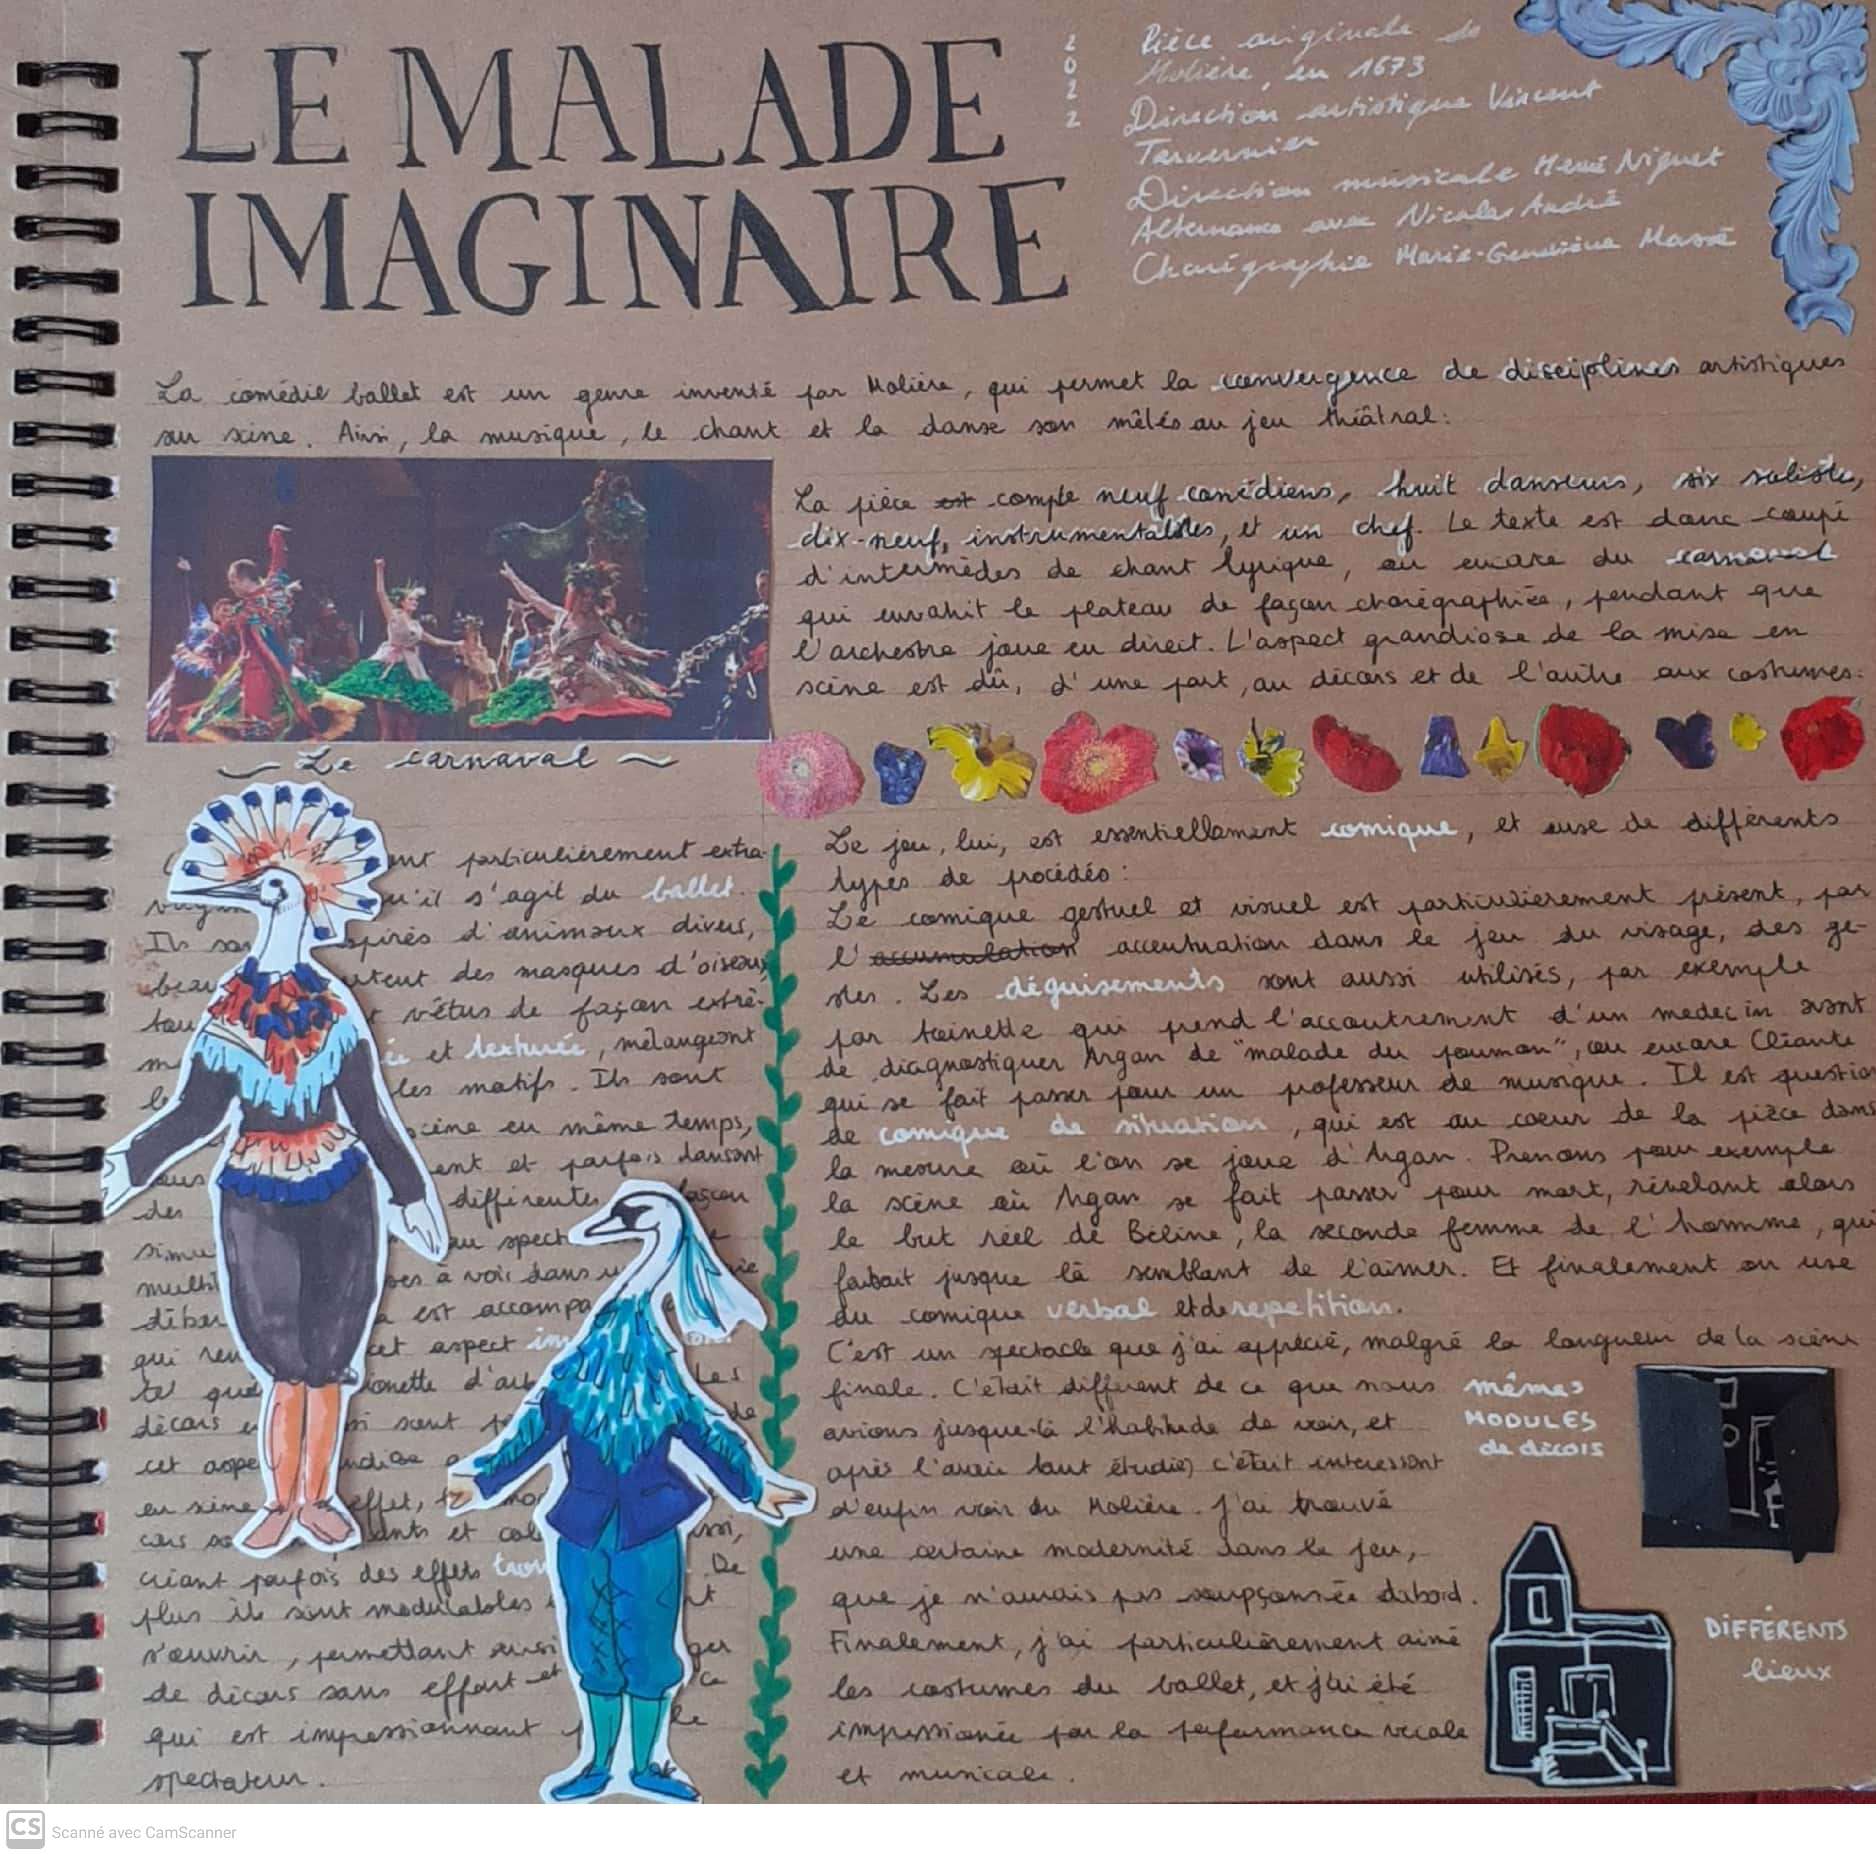 LE MALADE
IMAGINAIRE
2
0
2
2
Pièce originale de
Molière, en 1673
Direction artistique Vincent
Tavernier
Direction musicale Hervé Niquet
Alternance avec Nicolas André
Chorégraphie Marie-Geneviève Massé
La comédie ballet est un genre inventé par Molière, qui permet la convergence de disciplines artistiques
sur scène. Ainsi, la musique, le chant et la danse son mêlés au jeu théâtral:
La pièce est compte neuf comédiens, huit danseurs, six soliste,
dix-neuf, instrumentalistes, et un chef. Le texte est donc coupé
d'intermèdes de chant lyrique, ou encore du carnaval
qui envahit le plateau de façon chorégraphiée, pendant que
l'orchestre joue en direct. L'aspect grandiose de la mise en
scène est dû, d'une part, au décors et de l'autre aux costumes:
Le carnaval
particulièrement extra-
qu'il s'agit du ballet.
Ils d'animaux divers,
des masques d'oiseaux
vêtus de façon extrê-
et texturée, mélangeant
les motifs. Ils sont
scène en même temps,
et parfois dansant
des différentes façon
au
à voir dans
est
qui cet aspect
d'
décors sont
cet
en scène effet,
et
créant parfois des effets De
plus ils sont modulables
s'ouvrir, permettant ainsi
de décors sans effort et Ce
qui est impressionnant le
spectateur.
Le jeu, lui, est essentiellement comique, et euse de différents
types de procédés:
Le comique gestuel et visuel est particulièrement présent, par
l'accumulation accentuation dans le jeu du visage, des ge-
stes. Les déguisements sont aussi utilisés, par exemple
par toinette qui prend l'accoutrement d'un medecin avant
de diagnostiquer Argan de "malade du poumon", ou encore Cléante
qui se fait passer pour un professeur de musique. Il est question
de comique de situation, qui est au cœur de la pièce dans
la mesure où l'on se joue d'Argan. Prenons pour exemple
la scène où Argan se fait passer pour mort, révélant alors
le but réel de Béline, la seconde femme de l'homme, qui
faisait jusque là semblant de l'aimer. Et finalement on use
du comique verbal et de repetition.
C'est un spectacle que j'ai apprécié, malgré la longueur de la scène
finale. C'était différent de ce que nous
avions jusque-là l'habitude de voir, et
après l'avoir tant étudié, c'était interessant
d'enfin voir du Molière. J'ai trouvé
une certaine modernité dans le jeu,
que je n'aurais pas soupçonnée dabord.
Finalement, j'ai particulièrement aimé
les costumes du ballet, et j'ai été
impressionée par la performance vocale
et musicale.
mêmes
MODULES
de décors
DIFFÉRENTS
lieux
CS Scanné avec CamScanner